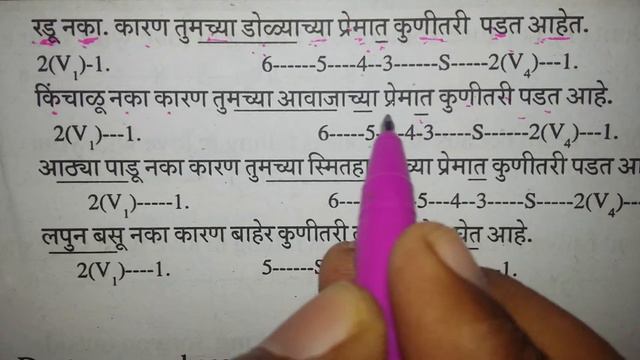 रडू नका. कारण तुमच्या डोळ्याच्या प्रेमात कुणीतरी पडत आहेत.
2(V₁)-1. 6------5----4--3------S-----2(V₄)---1.
किंचाळू नका कारण तुमच्या आवाजाच्या प्रेमात कुणीतरी पडत आहे.
2(V₁)---1. 6-----5 4-3-----S------2(V₄)---1.
आठ्या पाडू नका कारण तुमच्या च्या प्रेमात कुणीतरी पडत
2(V₁)-----1. 6-- 5---4--3-----S-----2(V₄)--
लपुन बसू नका कारण बाहेर कुणीतरी आहे.
2(V₁)----1. 5------S 1.